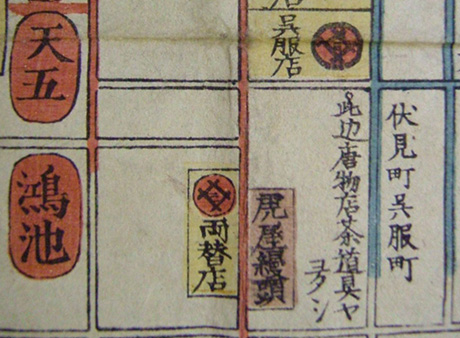 伏見町呉服町
此辺唐物店茶道具ヤ
呉服店
虎屋饅頭
両替店
天五
鴻池